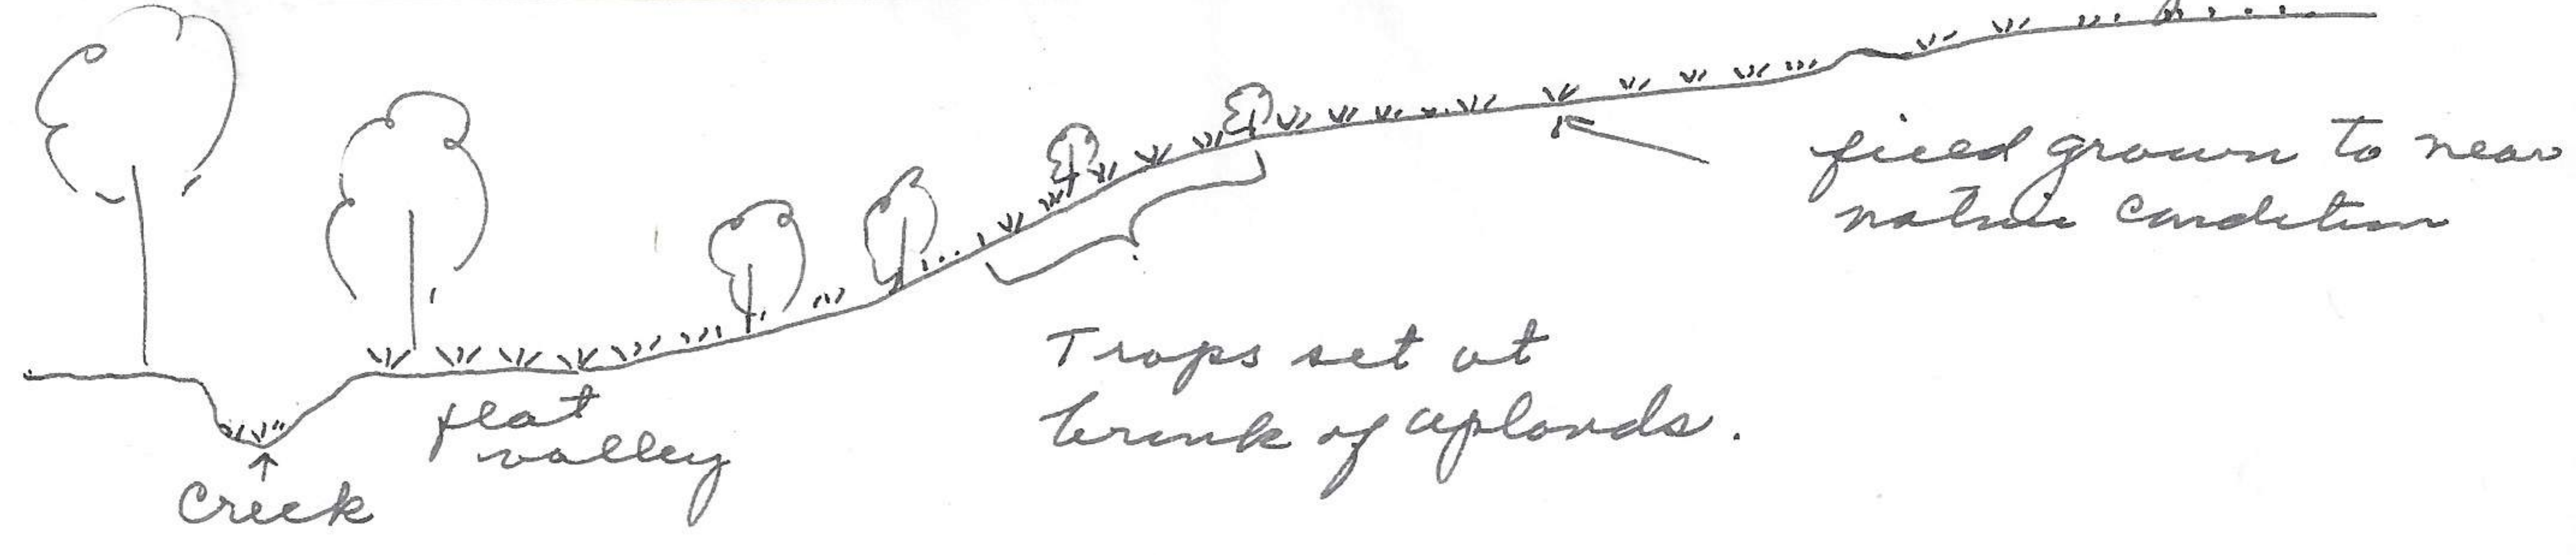 field grown to near
native condition
Traps set at
brink of uplands.
flat
valley
Creek